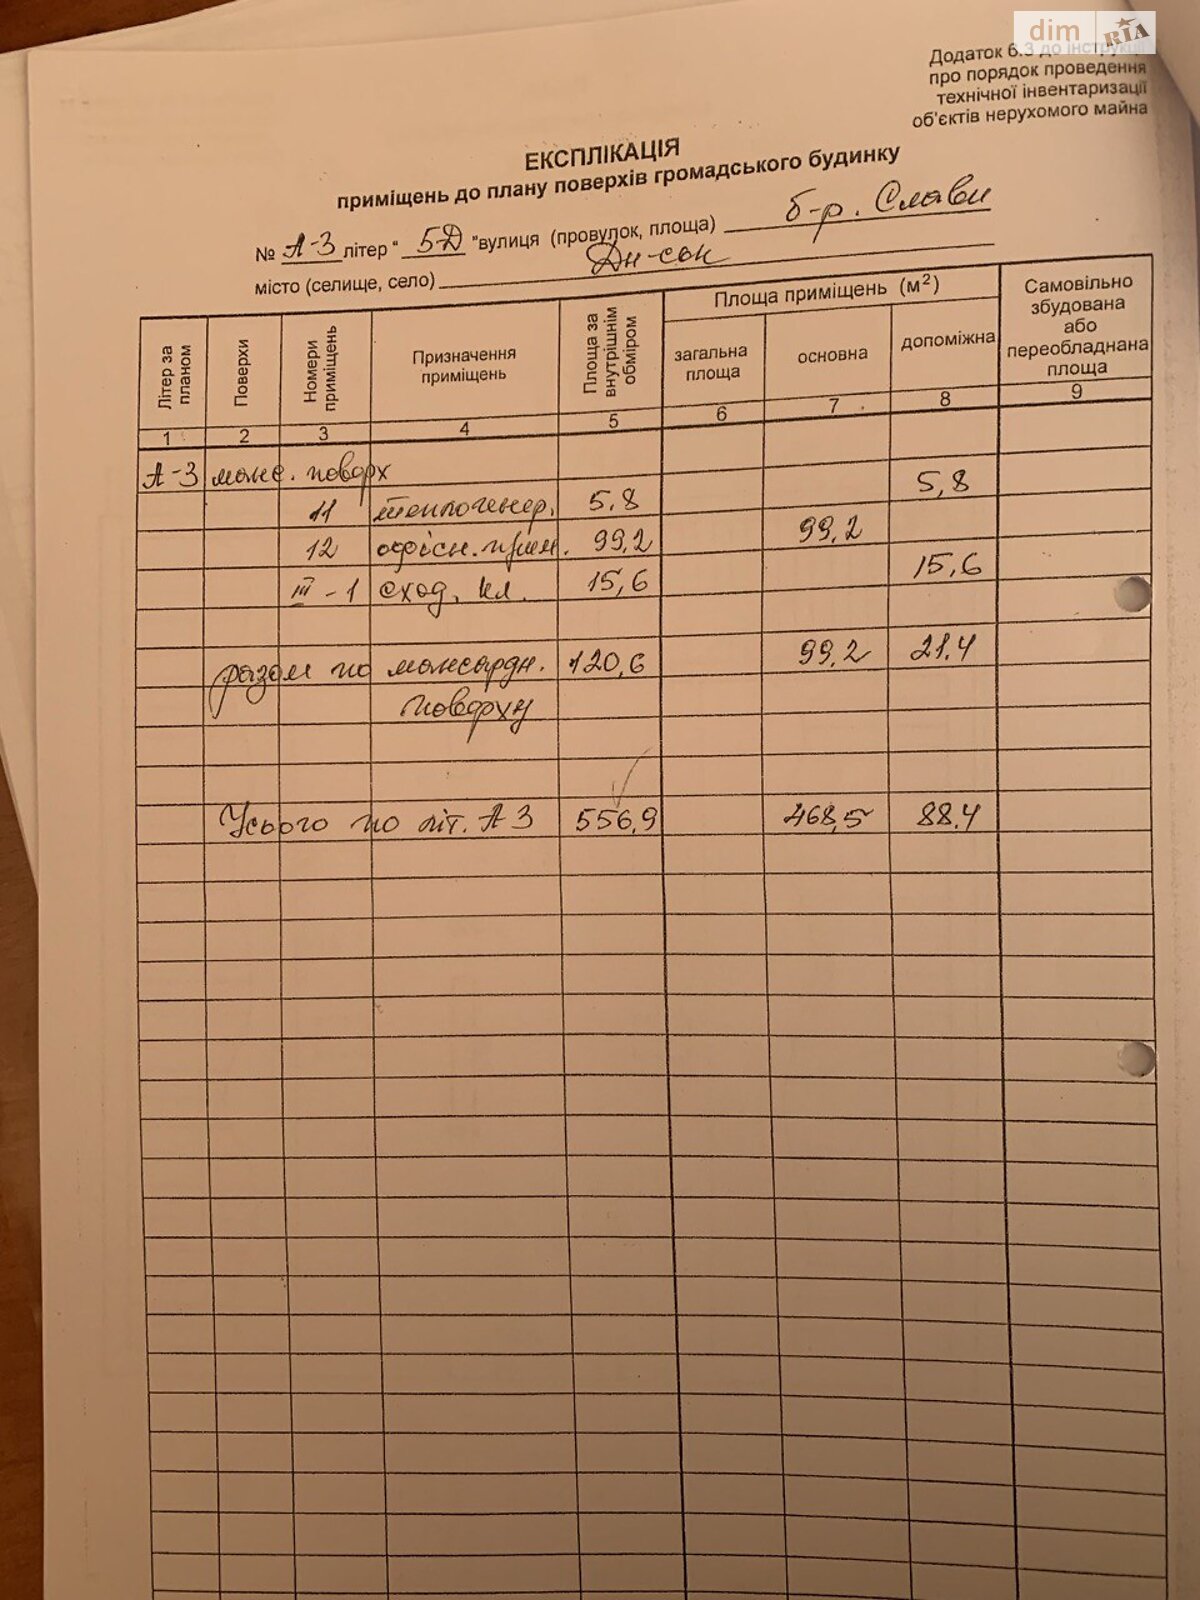 dim RIA
Додаток 6.3 до інструкції
про порядок проведення
технічної інвентаризації
об'єктів нерухомого майна
ЕКСПЛІКАЦІЯ
приміщень до плану поверхів громадського будинку
№ А-3 літер " 5-Д " вулиця (провулок, площа) б-р. Слави
місто (селище, село) Дн-ськ
Літер за планом Поверхи Номери приміщень Призначення приміщень Площа за внутрішнім обміром Площа приміщень (м²) Самовільно збудована або переобладнана площа
загальна площа основна допоміжна
1 2 3 4 5 6 7 8 9
А-3 манс. поверх
11 теплогенер. 5,8 5,8
12 офісн. прим. 99,2 99,2
III-1 сход. кл. 15,6 15,6
разом по мансардн. 120,6 99,2 21.4
поверху
Усього по літ. А 3 556,9 468,5 88.4